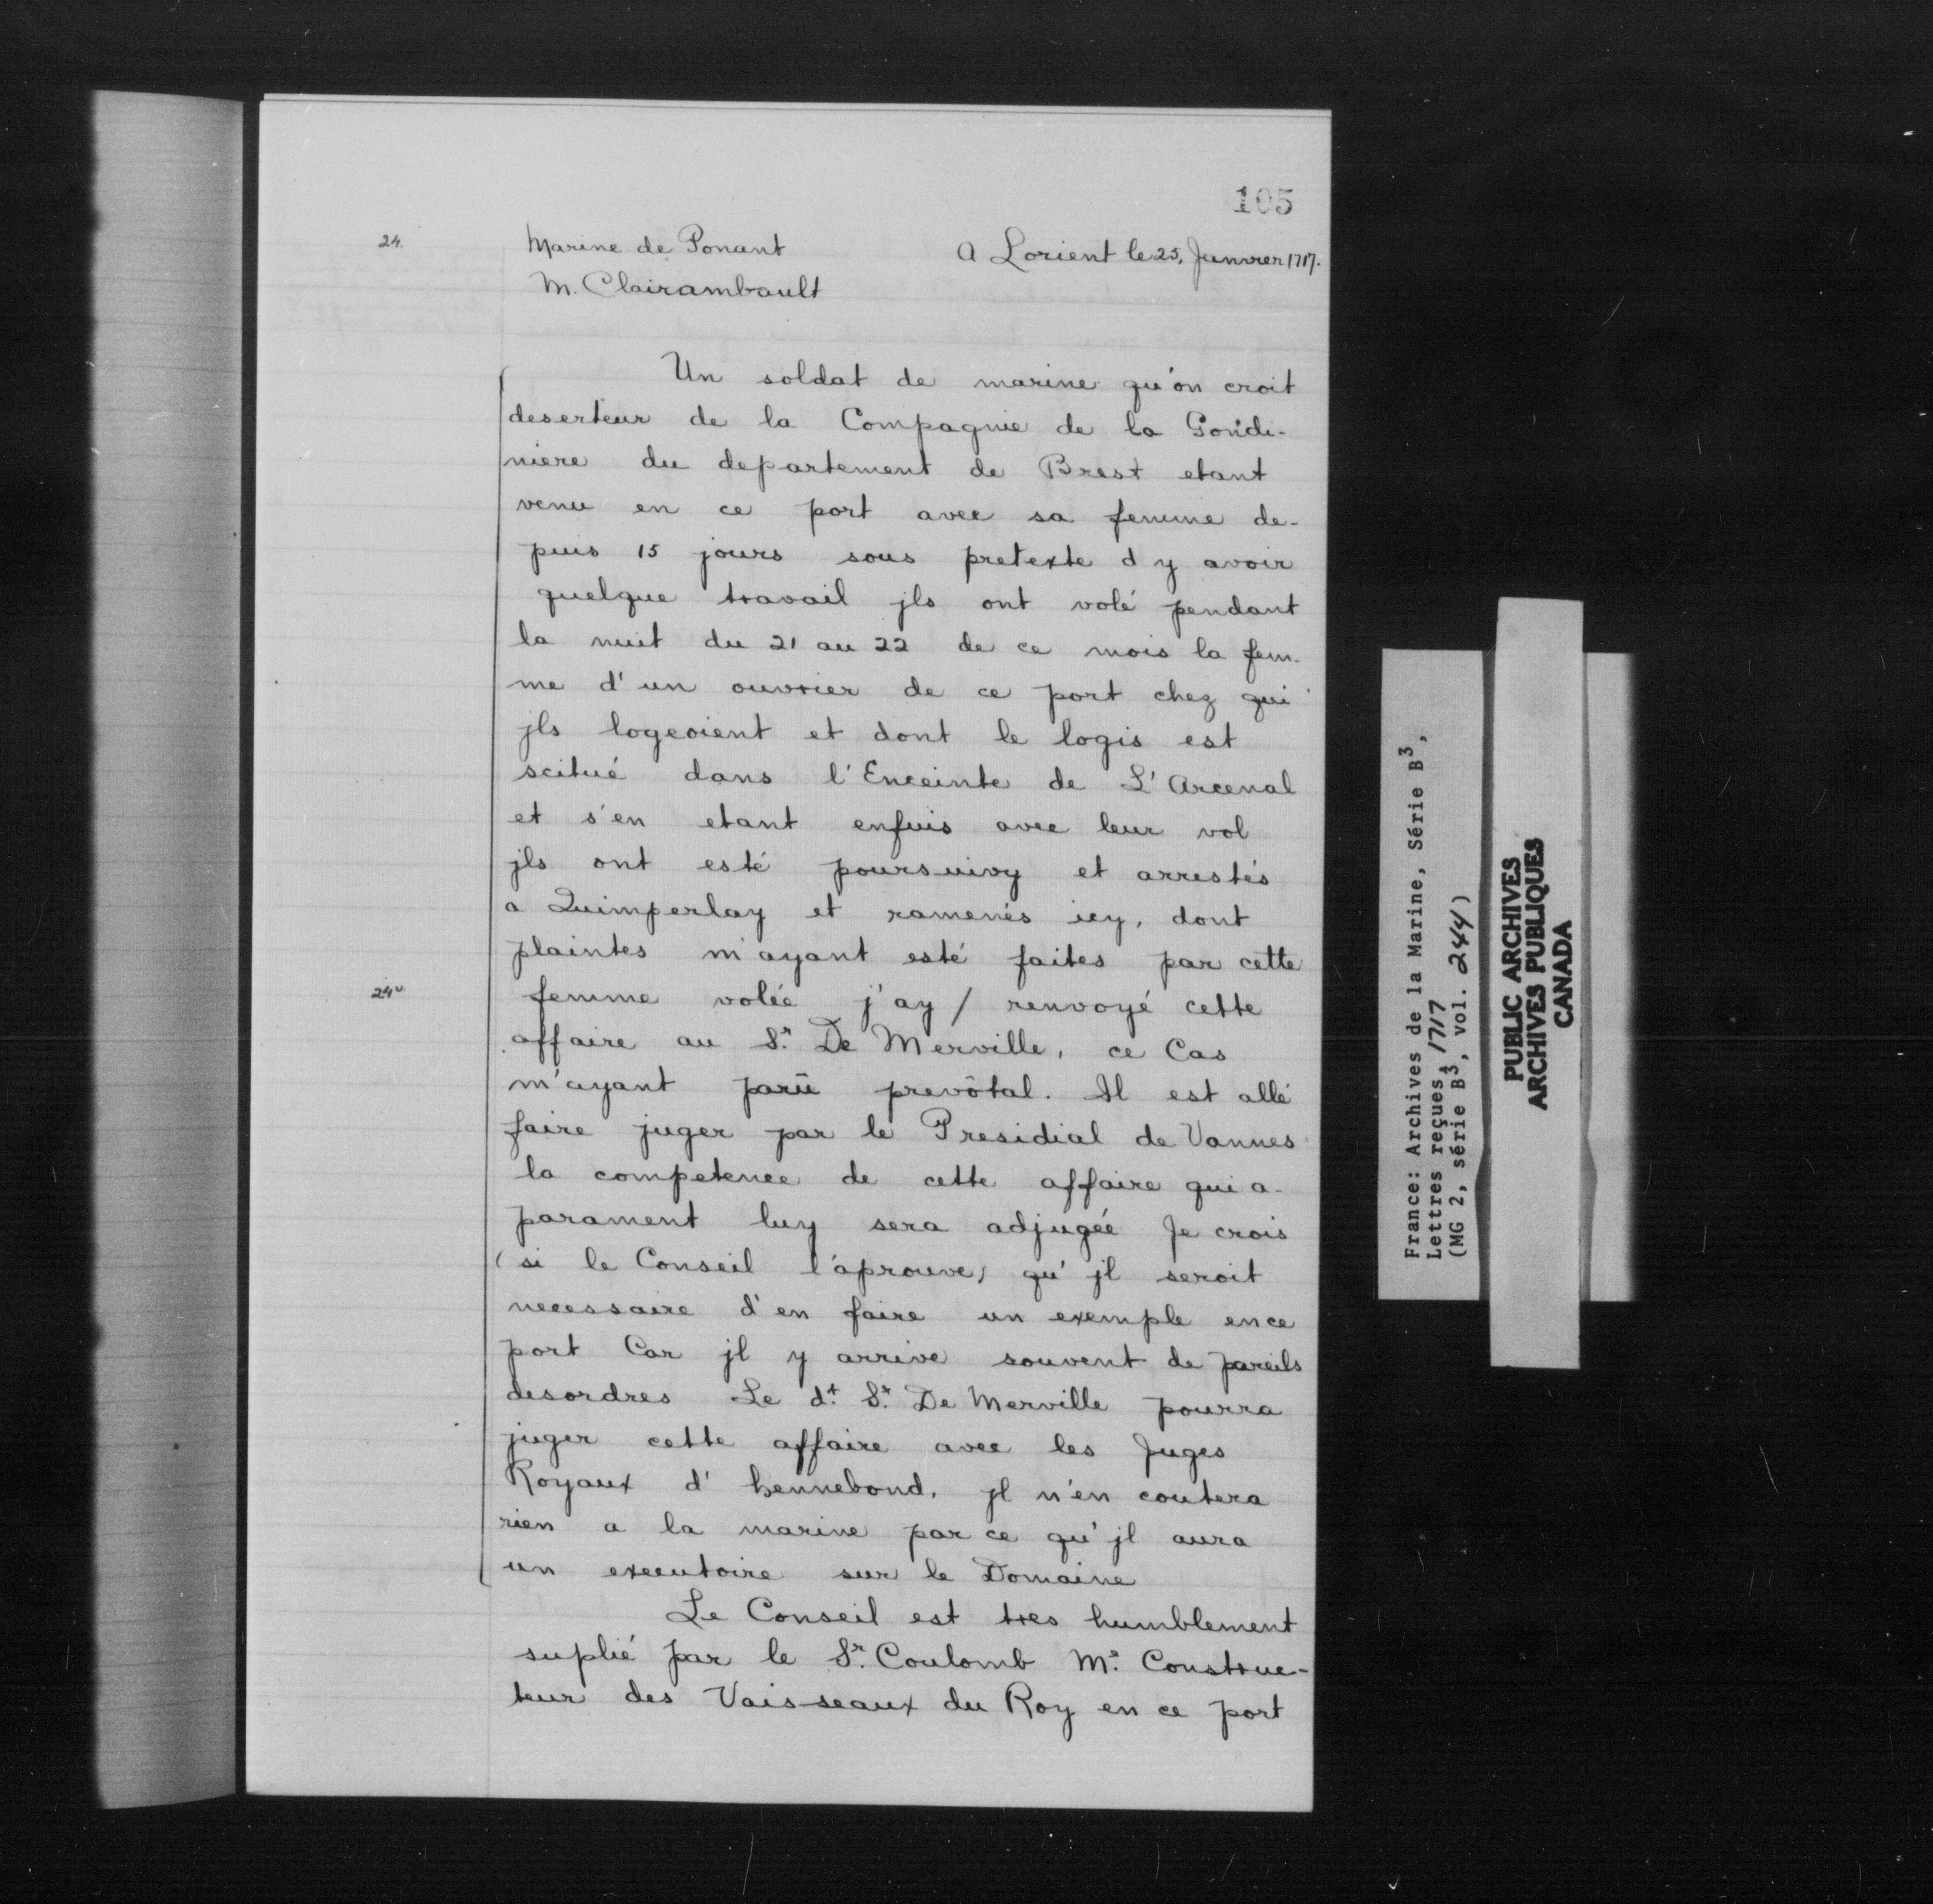 105
24.
Marine de Ponant
A Lorient le 25, Janvier 1717.
M. Clairambault
Un soldat de marine qu'on croit
deserteur de la Compagnie de la Gondi-
niere du departement de Brest etant
venu en ce port avec sa femme de-
puis 15 jours sous pretexte d y avoir
quelque travail jls ont volé pendant
la nuit du 21 au 22 de ce mois la fem-
me d'un ouvrier de ce port chez qui
jls logeoient et dont le logis est
scitué dans l'Enceinte de L'Arcenal
et s'en etant enfuis avec leur vol
jls ont esté poursuivy et arrestés
a Quimperlay et ramenés icy, dont
plaintes m'ayant esté faites par cette
24v
femme volée j'ay / renvoyé cette
affaire au Sr. De Merville, ce Cas
m'ayant parû prevôtal. Il est allé
faire juger par le Presidial de Vannes
la competence de cette affaire qui a-
parament luy sera adjugée Je crois
(si le Conseil l'aprouve) qu'jl seroit
necessaire d'en faire un exemple en ce
port Car jl y arrive souvent de pareils
desordres Le dt. Sr. De Merville pourra
juger cette affaire avec les Juges
Royaux d'hennebond, jl n'en coutera
rien a la marine par ce qu'jl aura
un executoire sur le Domaine
Le Conseil est tres humblement
suplié par le Sr. Coulomb Me. Construc-
teur des Vaisseaux du Roy en ce port
France: Archives de la Marine, Série B3,
Lettres reçues, 1717
(MG 2, série B3, vol. 244)
PUBLIC ARCHIVES
ARCHIVES PUBLIQUES
CANADA